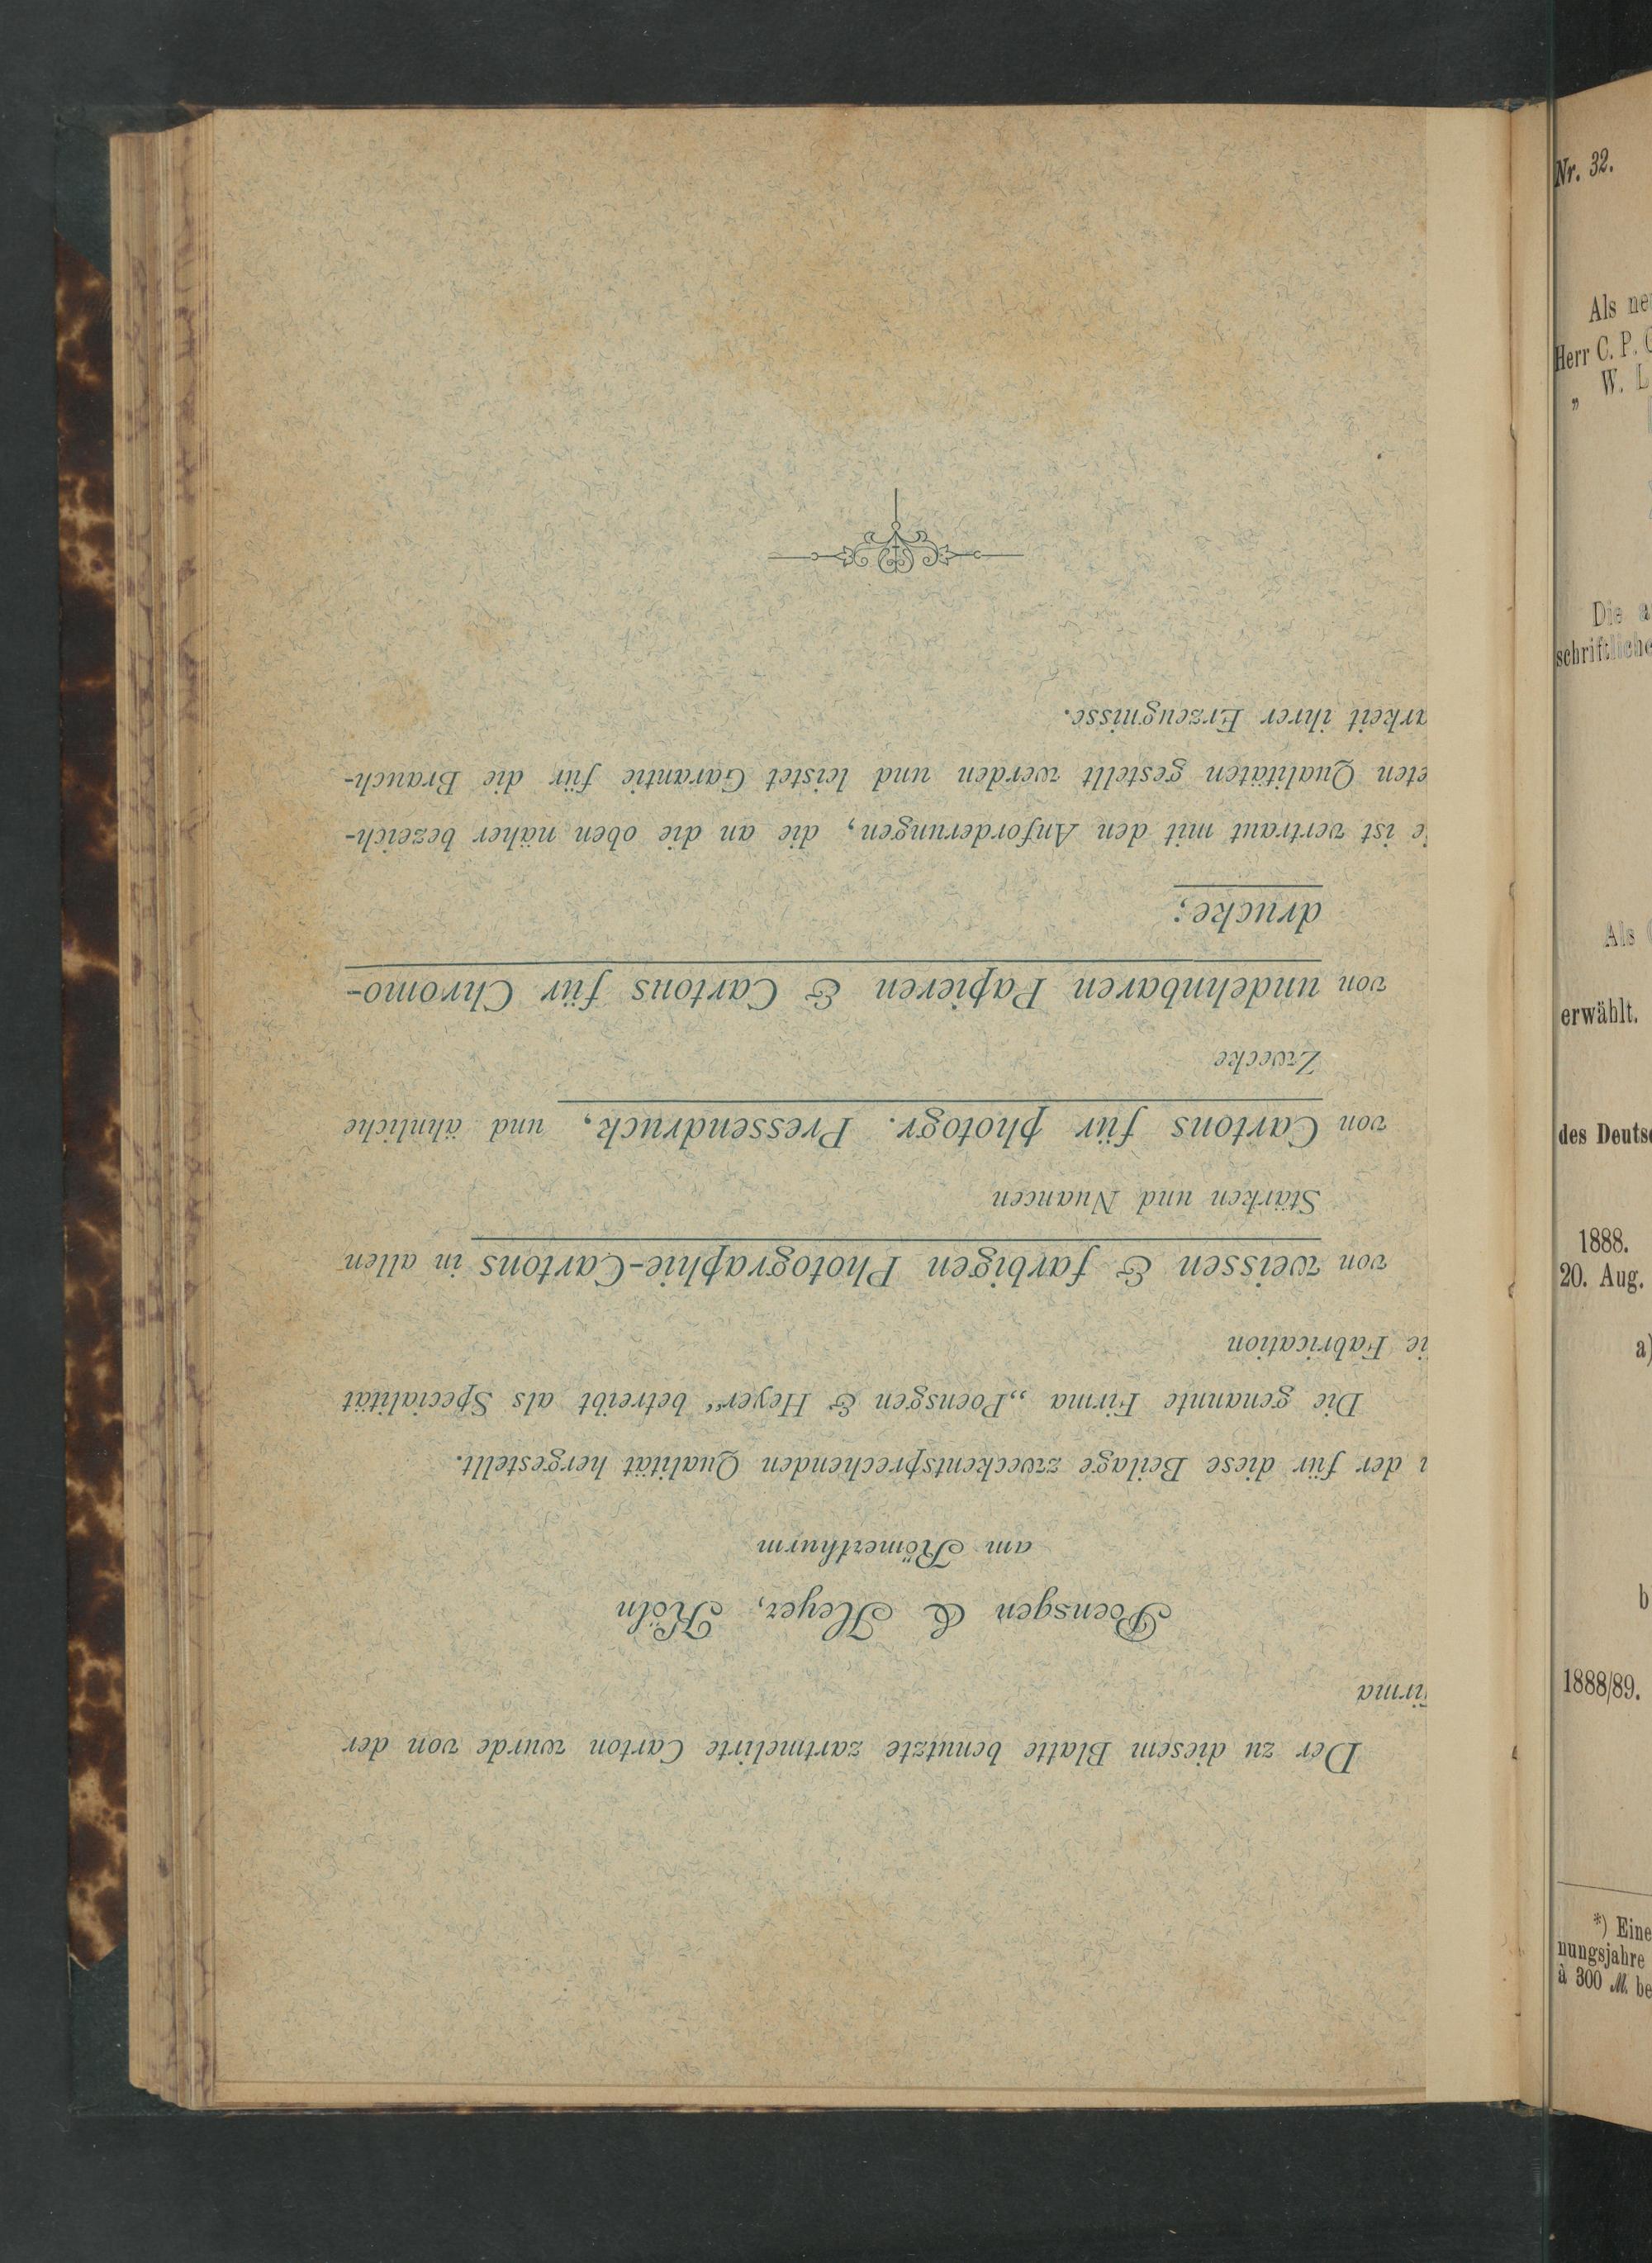 Der zu diesem Blatte benutzte zartmelirte Carton wurde von der
irma
Poensgen & Heyer, Köln
am Römerthurm
der für diese Beilage zweckentsprechenden Qualität hergestellt.
Die genannte Firma „Poensgen & Heyer“ betreibt als Specialität
ie Fabrication
von weissen & farbigen Photographie-Cartons in allen
Stärken und Nuancen
von Cartons für photogr. Pressendruck, und ähnliche
Zwecke
von undehnbaren Papieren & Cartons für Chromo-
drucke;
e ist vertraut mit den Anforderungen, die an die oben näher bezeich-
eten Qualitäten gestellt werden und leistet Garantie für die Brauch-
arkeit ihrer Erzeugnisse.
Nr. 32.
Als ne
Herr C. P.
„ W. L
Die a
schriftliche
Als
erwählt.
des Deuts
1888.
20. Aug.
a)
b
1888/89.
*) Eine
nungsjahre
à 300 M. be